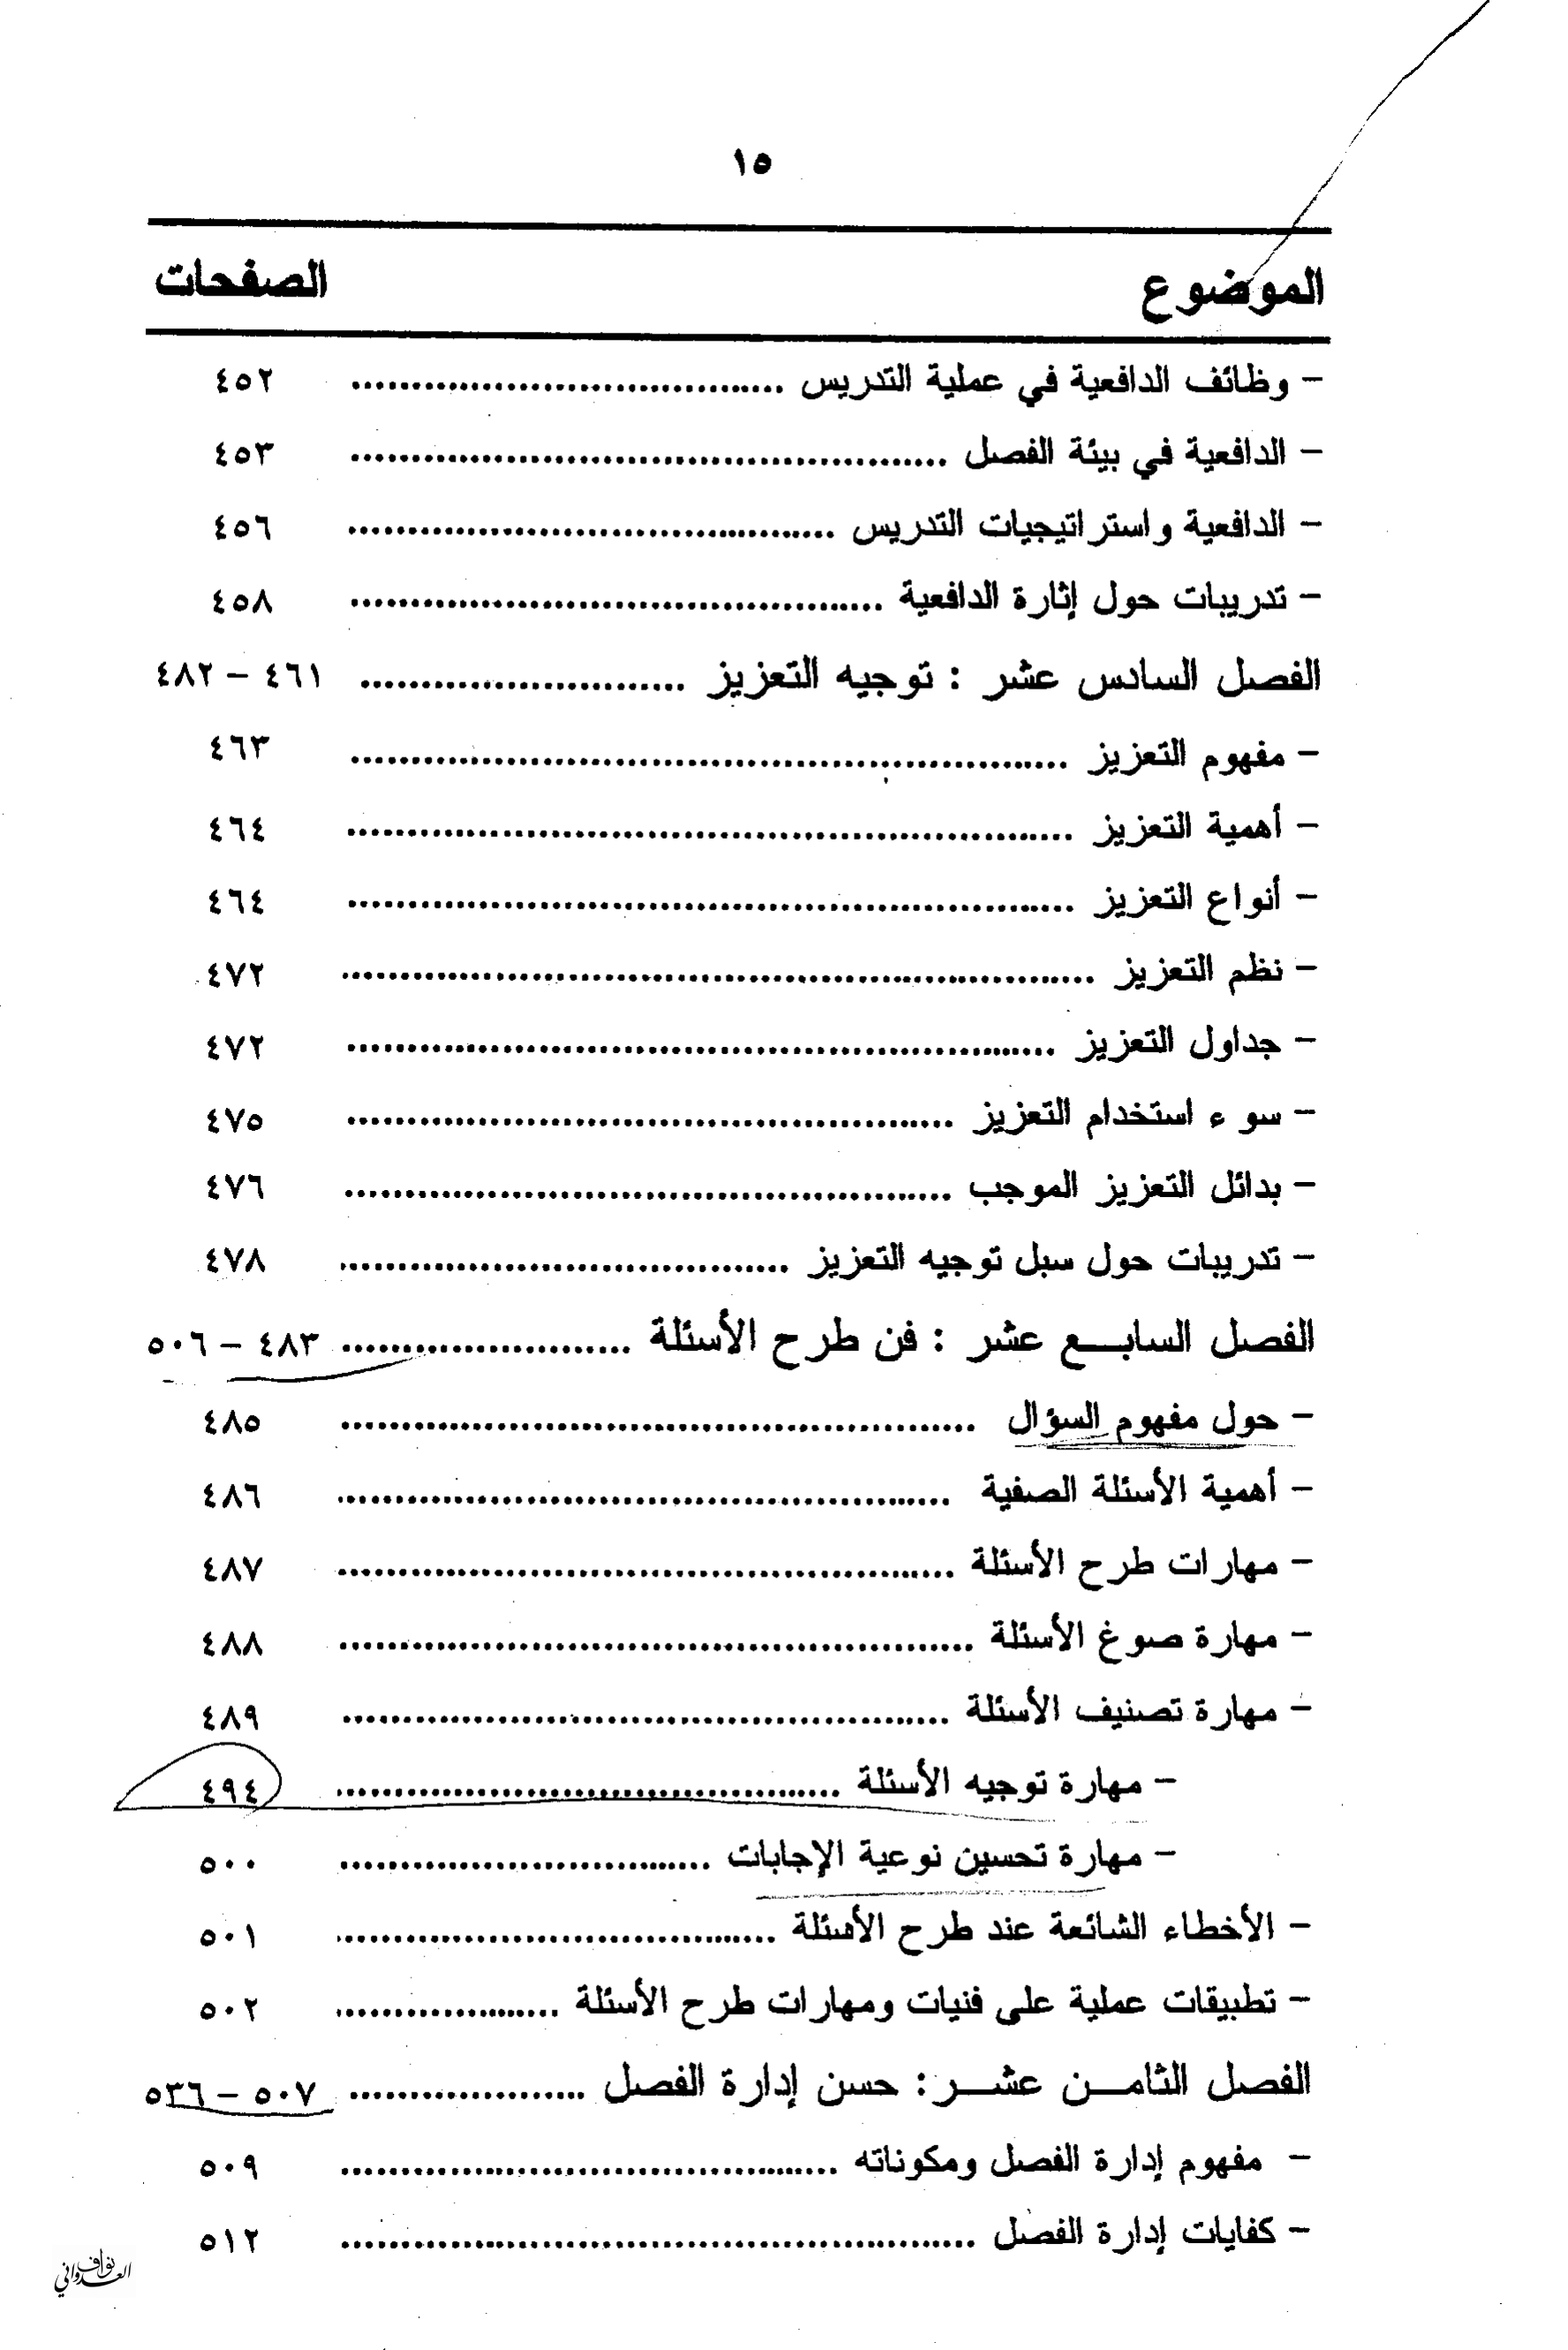 ١٥
الموضوع الصفحات
- وظائف الدافعية في عملية التدريس ................ ٤٥٢
- الدافعية في بيئة الفصل ................ ٤٥٣
- الدافعية واستراتيجيات التدريس ................ ٤٥٦
- تدريبات حول إثارة الدافعية ................ ٤٥٨
الفصل السادس عشر : توجيه التعزيز ................ ٤٦١ - ٤٨٢
- مفهوم التعزيز ................ ٤٦٣
- أهمية التعزيز ................ ٤٦٤
- أنواع التعزيز ................ ٤٦٤
- نظم التعزيز ................ ٤٧٢
- جداول التعزيز ................ ٤٧٢
- سوء استخدام التعزيز ................ ٤٧٥
- بدائل التعزيز الموجب ................ ٤٧٦
- تدريبات حول سبل توجيه التعزيز ................ ٤٧٨
الفصل السابـــع عشر : فن طرح الأسئلة ................ ٤٨٣ - ٥٠٦
- حول مفهوم السؤال ................ ٤٨٥
- أهمية الأسئلة الصفية ................ ٤٨٦
- مهارات طرح الأسئلة ................ ٤٨٧
- مهارة صوغ الأسئلة ................ ٤٨٨
- مهارة تصنيف الأسئلة ................ ٤٨٩
- مهارة توجيه الأسئلة ................ ٤٩٤
- مهارة تحسين نوعية الإجابات ................ ٥٠٠
- الأخطاء الشائعة عند طرح الأسئلة ................ ٥٠١
- تطبيقات عملية على فنيات ومهارات طرح الأسئلة ................ ٥٠٢
الفصل الثامـــن عشـــر : حسن إدارة الفصل ................ ٥٠٧ - ٥٣٦
- مفهوم إدارة الفصل ومكوناته ................ ٥٠٩
- كفايات إدارة الفصل ................ ٥١٢
نواف العدواني